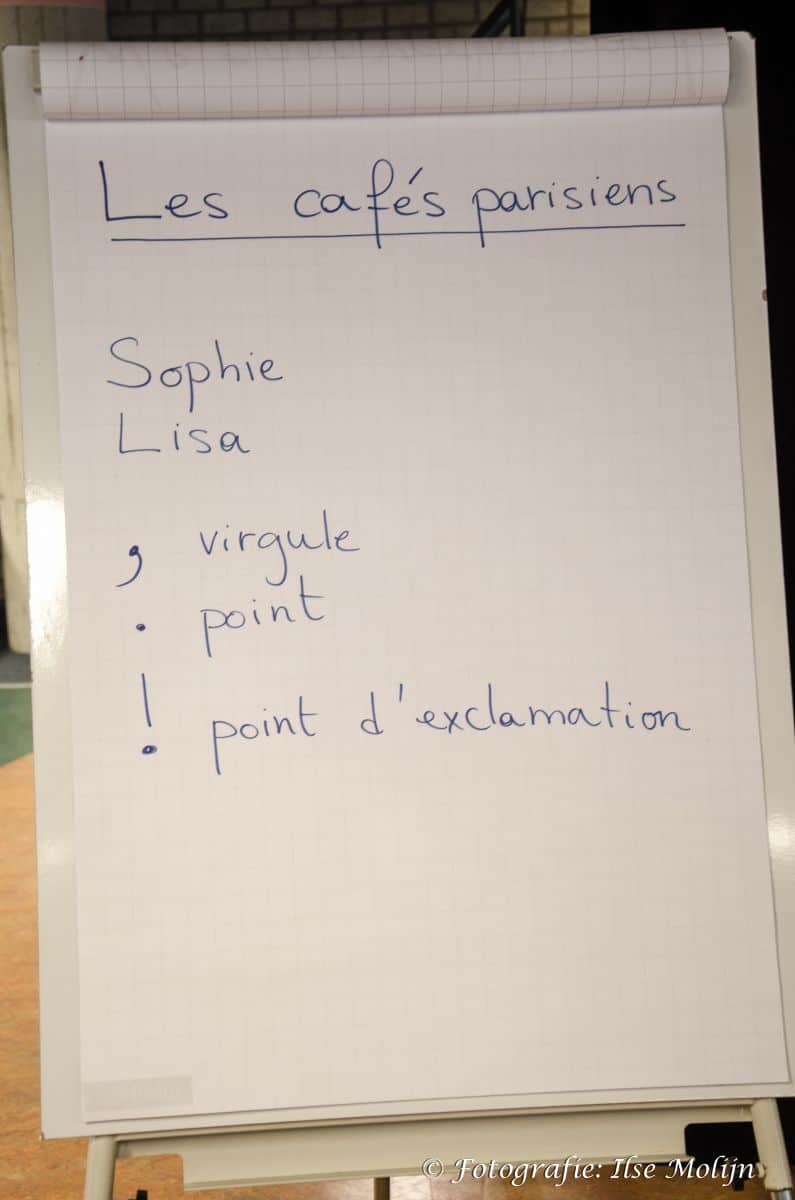 Les cafés parisiens
Sophie
Lisa
, virgule
. point
! point d'exclamation
© Fotografie: Ilse Molijn